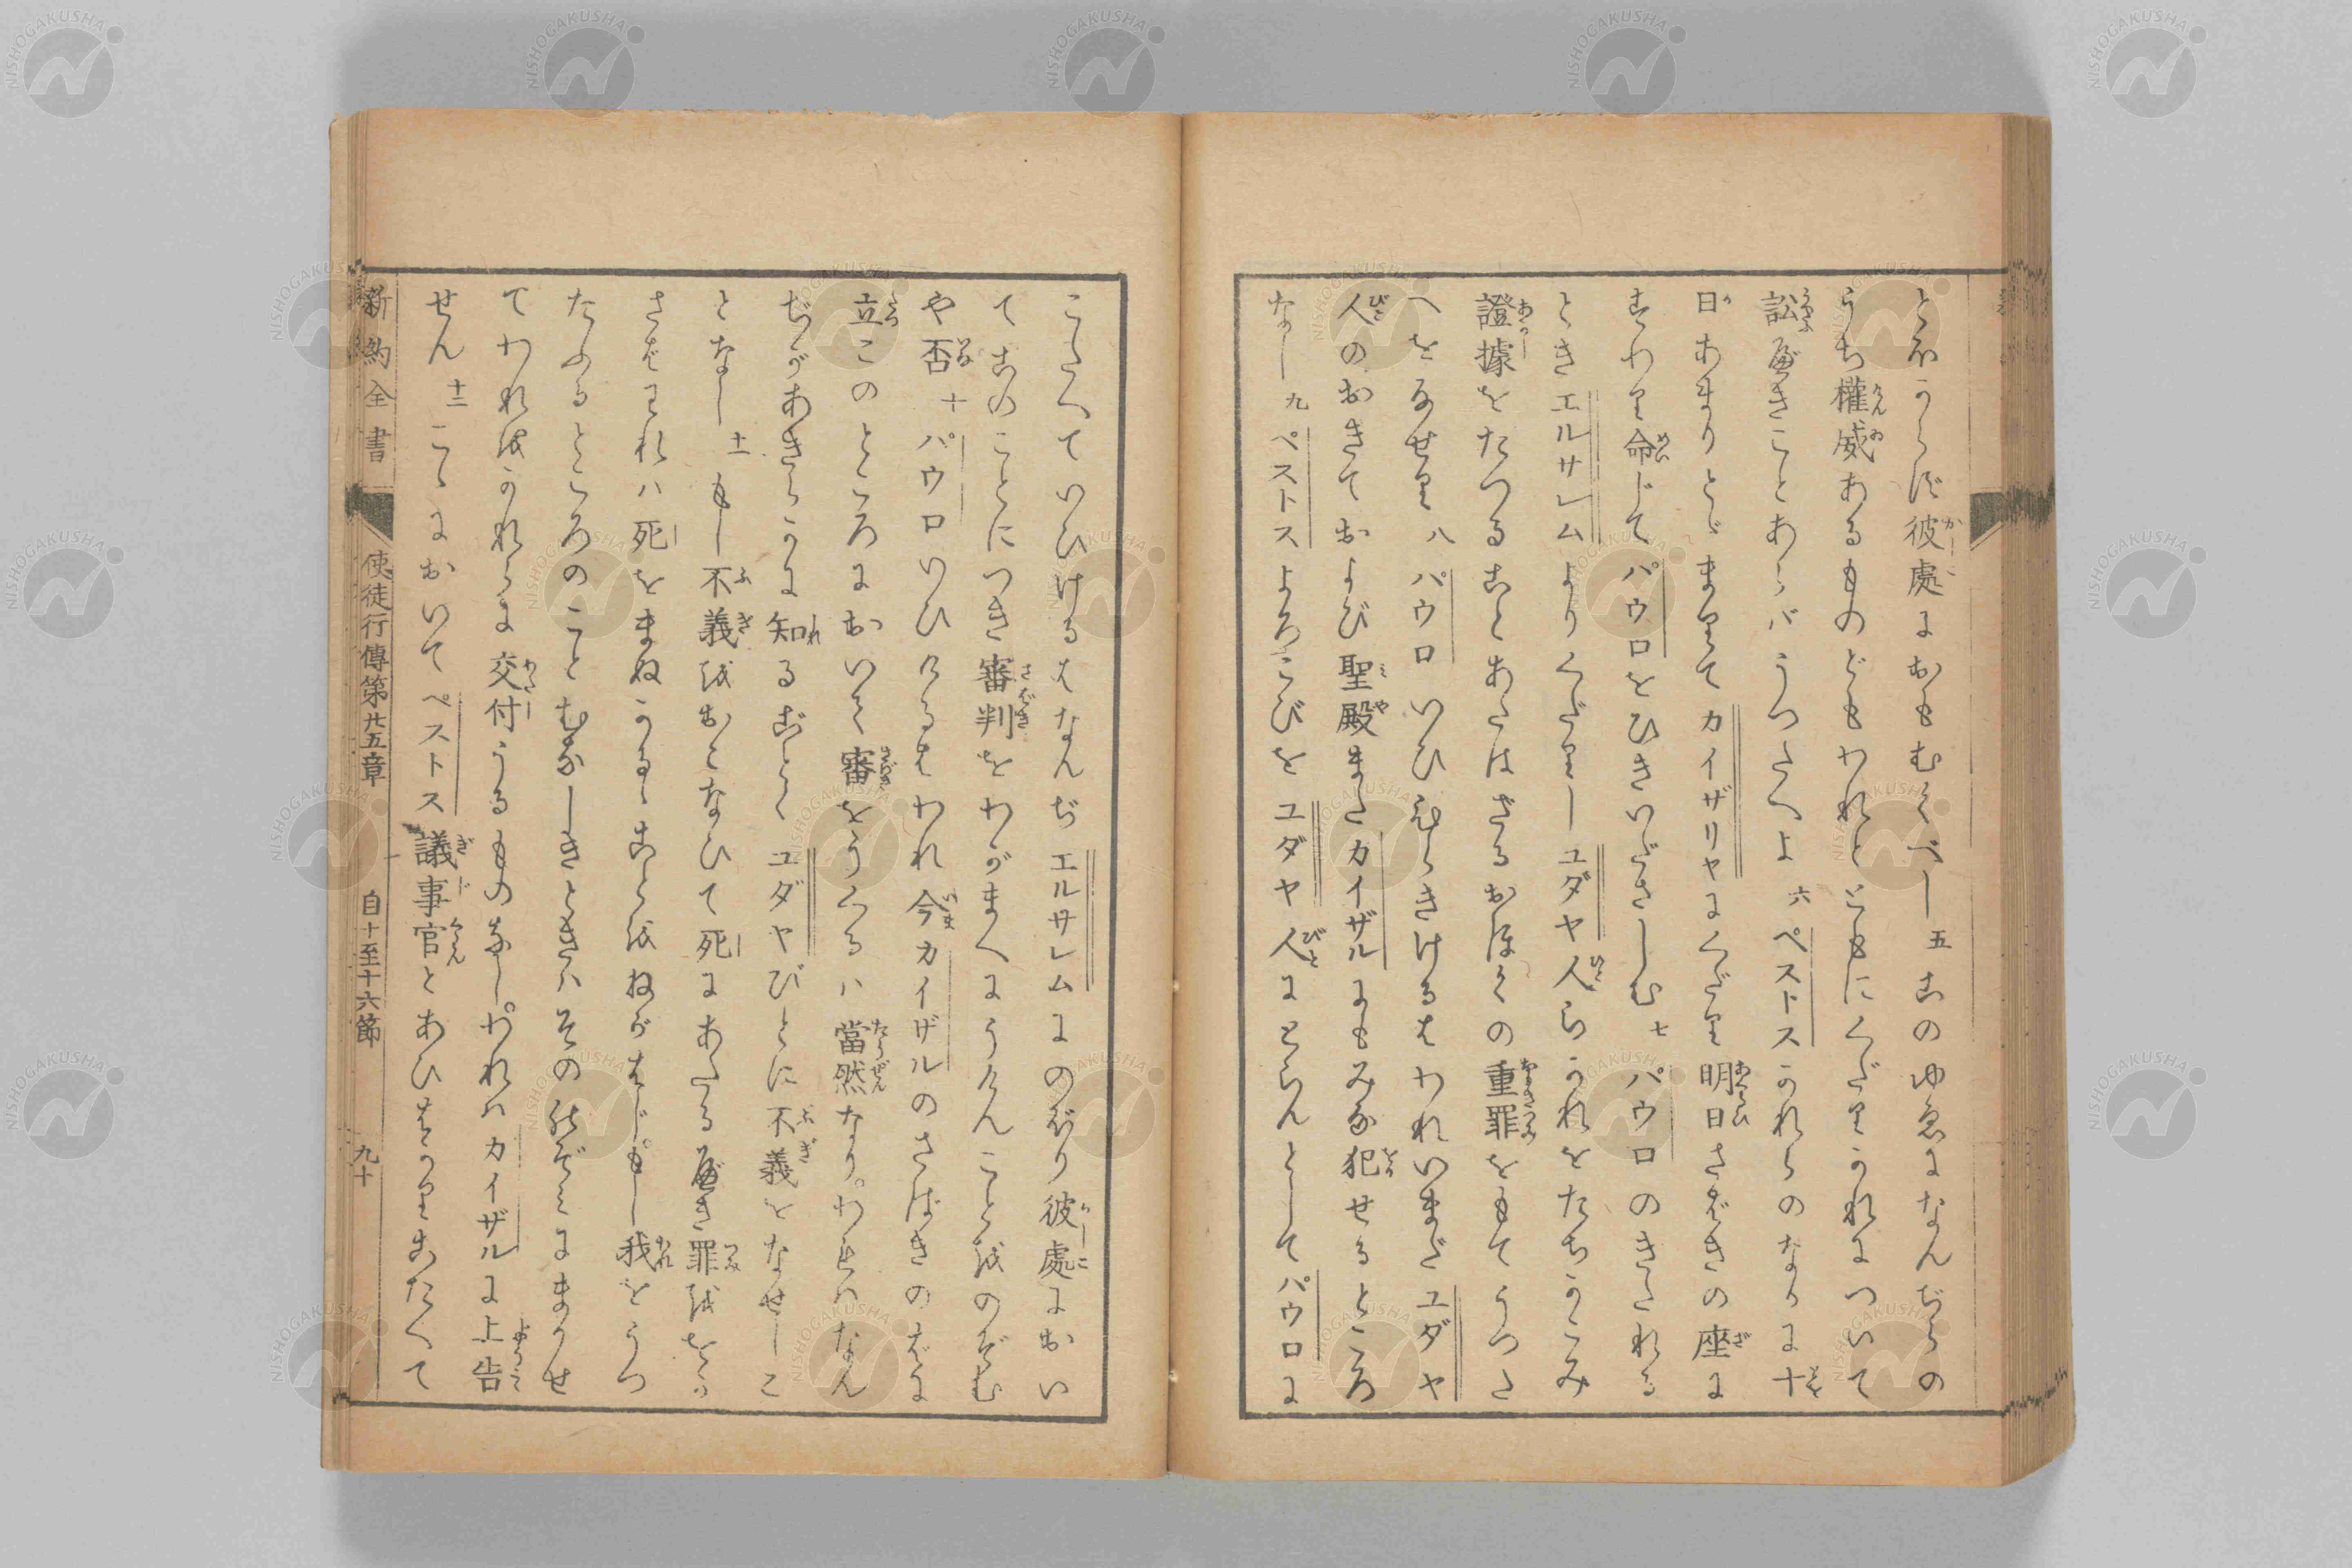 とほからず彼處におもむくべし 五 このゆゑになんぢらの
うち權威あるものどもわれとともにくだりかれについて
訟べきことあらバうつたへよ 六 ペストスかれらのなかに十
日あまりとゞまりてカイザリヤにくだり明日さばきの座に
すわり命じてパウロをひきいださしむ 七 パウロのきたれる
ときエルサレムよりくだりしユダヤ人らかれをたちかこみ
證據をたつることあたはざるおほくの重罪をもてうつた
へをなせり 八 パウロいひひらきけるはわれいまだユダヤ
人のおきておよび聖殿またカイザルにもみな犯せるところ
なし 九 ペストスよろこびをユダヤ人にとらんとしてパウロに
こたへていひけるはなんぢエルサレムにのぼり彼處におい
てこのことにつき審判をわがまへにうけんことをのぞむ
や否 十 パウロいひけるはわれ今カイザルのさばきのばに
立このところにおいて審をうくるハ當然なり。われハなん
ぢがあきらかに知るごとくユダヤびとに不義をなせしこ
となし 十一 もし不義をおこなひて死にあたるべき罪ををか
さばそれハ死をまぬかるゝことをねがはじもし我をうつ
たふるところのことむなしきときハその所ぞみにまかせ
てわれをかれらに交付うるものなし。われハカイザルに上告
せん 十二 こゝにおいてペストス議事官とあひはかりこたへて
新約全書 使徒行傳第廿五章 自十至十六節 九十